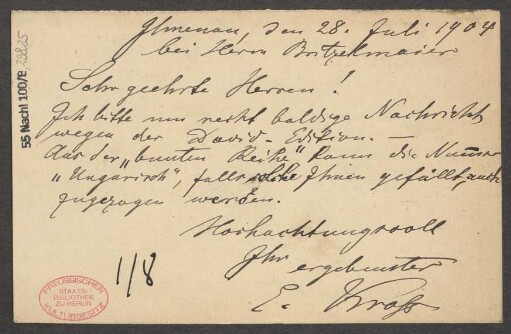 Ilmenau, den 28. Juli 1904
bei Herrn Britzelmaier
Sehr geehrte Herren!
Ich bitte um recht baldige Nachricht
wegen der David-Edition. —
Aus der „bunten Reihe" kann die Nummer
„Ungarisch", falls solche Ihnen gefällt, auch
zugezogen werden.
Hochachtungsvoll
Ihr
ergebenster
E. Kross
1/8
55 Nachl 100/B,
PREUSSISCHER
STAATS-
BIBLIOTHEK
ZU BERLIN
KULTURBESITZ